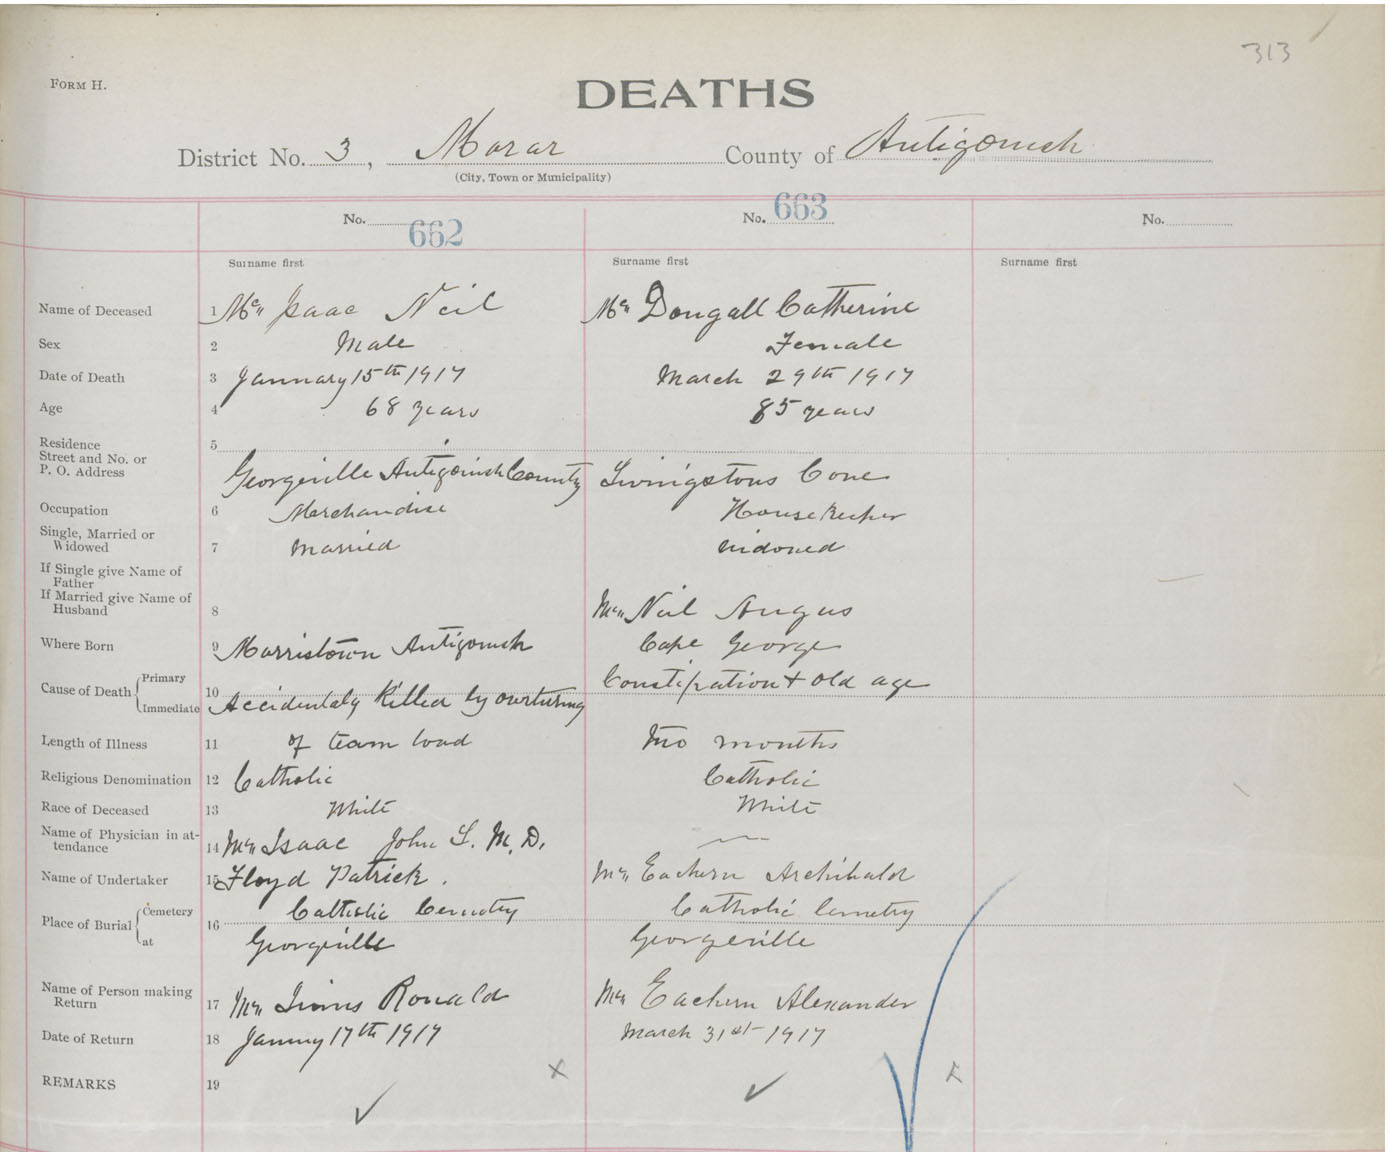 313
FORM H.
DEATHS
District No. 3, Morar County of Antigonish
(City, Town or Municipality)
No. 662 No. 663 No.
Surname first Surname first Surname first
Name of Deceased 1 Mc Isaac Neil Mc Dougall Catherine
Sex 2 Male Female
Date of Death 3 January 15th 1917 March 29th 1917
Age 4 68 years 85 years
Residence
Street and No. or
P. O. Address 5 Georgeville Antigonish County Livingstons Cove
Occupation 6 Merchandise House Keeper
Single, Married or
Widowed 7 Married Widowed
If Single give Name of
Father
If Married give Name of
Husband 8 Mc Neil Angus
Where Born 9 Morristown Antigonish Cape George
Cause of Death Primary
Immediate 10 Accidentaly Killed by overturning Constipation + old age
Length of Illness 11 of team load Two months
Religious Denomination 12 Catholic Catholic
Race of Deceased 13 White White
Name of Physician in at-
tendance 14 Mc Isaac John L. M. D.
Name of Undertaker 15 Floyd Patrick. Mc Eachern Archibald
Place of Burial Cemetery
at 16 Catholic Cemetry Catholic Cemetry
Georgeville Georgeville
Name of Person making
Return 17 Mc Ronald Mc Eachern Alexander
Date of Return 18 January 17th 1917 March 31st 1917
REMARKS 19